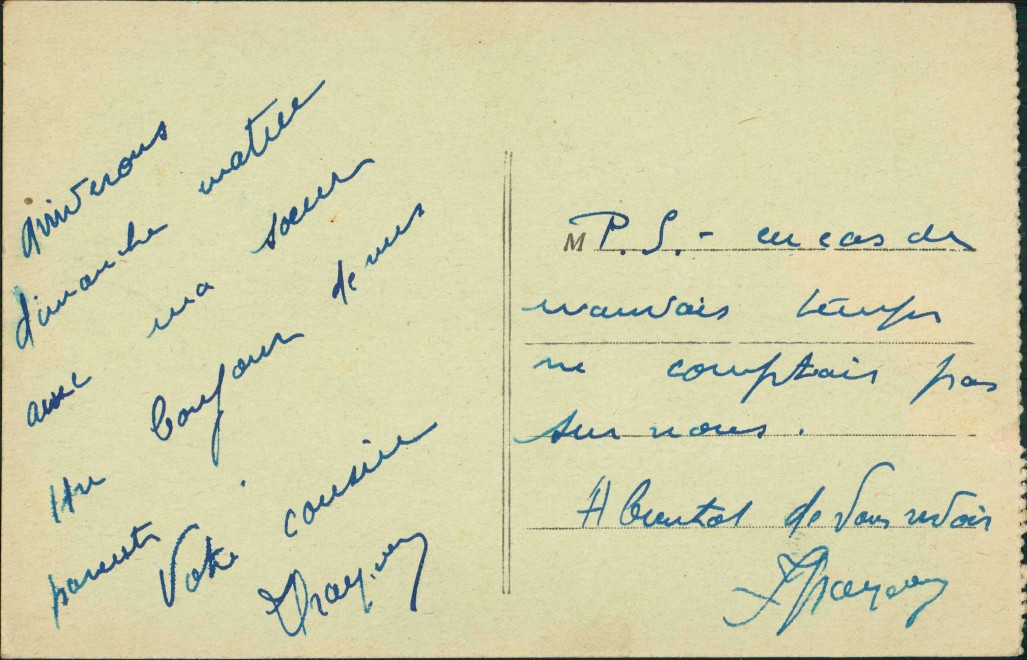 arriverons
dimanche matiee
avec ma soeur
Un bonjour de mes
parents
Votre cousine
M P. S. - en cas de
mauvais temps
ne comptais pas
sur nous.
A bientot de vous revoir